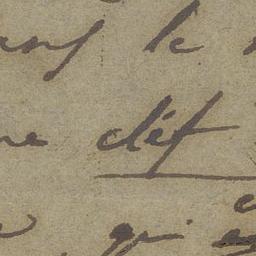 ans le
ne cléf
qui